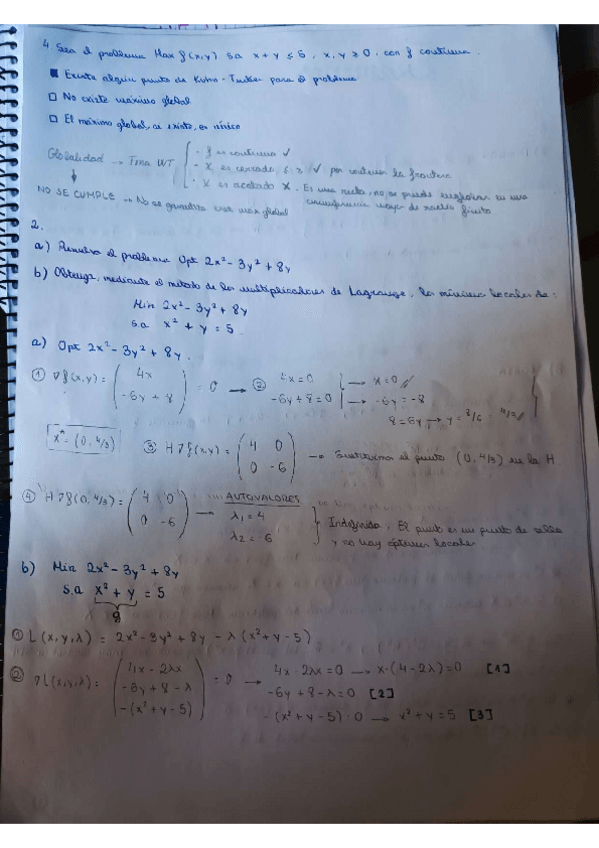 4. Sea el problema Max f(x,y) s.a x + y ≤ 5, x, y ≥ 0, con f continua.
■ Existe algún punto de Kuhn-Tucker para el problema
□ No existe máximo global
□ El máximo global, si existe, es único
Globalidad → Tma WT { - f es continua ✓
- X es cerrado, ≤ ≥ ✓ por contener la frontera
- X es acotado X. Es una recta, no se puede englobar en una circunferencia mayor de radio finito
NO SE CUMPLE → No se garantiza max global
2.
a) Resuelva el problema Opt 2x² - 3y² + 8y
b) Obtenga, mediante el método de los multiplicadores de Lagrange, los mínimos locales de:
Min 2x² - 3y² + 8y
s.a x² + y = 5
a) Opt 2x² - 3y² + 8y.
① ∇f(x,y) = ( 4x
-6y + 8 ) = 0 → ② 4x = 0 → x = 0
-6y + 8 = 0 → -6y = -8
8 = 6y → y = 8/6 = 4/3
x* = (0, 4/3)
③ H f(x,y) = ( 4 0
0 -6 ) → Sustituimos el punto (0, 4/3) en la H
④ H f(0, 4/3) = ( 4 0
0 -6 ) → AUTOVALORES
λ₁ = 4
λ₂ = -6
} Indefinida. El punto es un punto de silla y no hay óptimos locales
b) Min 2x² - 3y² + 8y
s.a x² + y = 5
g
① L(x, y, λ) = 2x² - 3y² + 8y - λ(x² + y - 5)
② ∇L(x,y,λ) = ( 4x - 2λx
-6y + 8 - λ
-(x² + y - 5) ) = 0 → 4x - 2λx = 0 → x·(4 - 2λ) = 0 [1]
-6y + 8 - λ = 0 [2]
-(x² + y - 5) = 0 → x² + y = 5 [3]